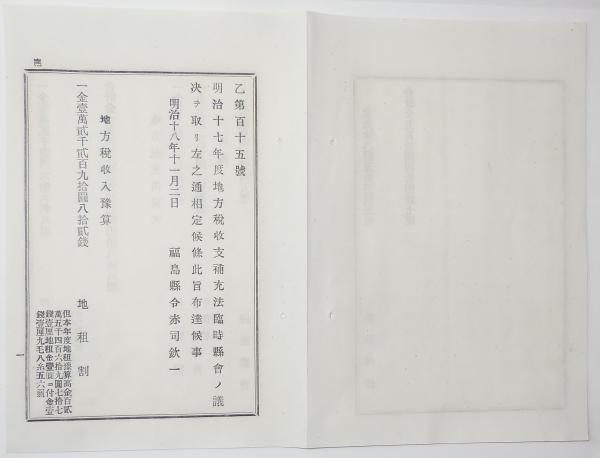 乙第百十五號
明治十七年度地方税收支補充法臨時縣會ノ議
决ヲ取リ左之通相定候條此旨布達候事
明治十八年十一月二日
福島縣令赤司欽一
地方税收入豫算
一金壹萬貳千貳百九拾圓八拾貳錢
地租割
但本年度地租豫算高金百貳
萬五千四百六拾九圓七拾七
錢壹厘地租金壹圓ニ付金壹
錢壹厘九毛八糸五六
一